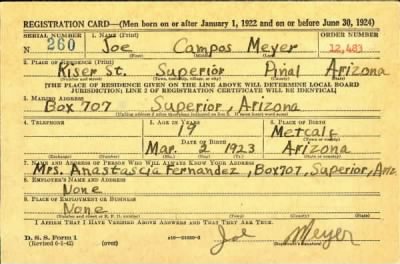 REGISTRATION CARD—(Men born on or after January 1, 1922 and on or before June 30, 1924)
SERIAL NUMBER 1. NAME (Print) ORDER NUMBER
N 260 Joe Campos Meyer 12,483
(First) (Middle) (Last)
2. PLACE OF RESIDENCE (Print)
Kiser St. Superior Pinal Arizona
(Number and street) (Town, township, village, or city) (County) (State)
[THE PLACE OF RESIDENCE GIVEN ON THE LINE ABOVE WILL DETERMINE LOCAL BOARD
JURISDICTION; LINE 2 OF REGISTRATION CERTIFICATE WILL BE IDENTICAL]
3. MAILING ADDRESS
Box 707 Superior, Arizona
[Mailing address if other than place indicated on line 2. If same insert word same]
4. TELEPHONE 5. AGE IN YEARS 6. PLACE OF BIRTH
19 Metcalf
DATE OF BIRTH (Town or county)
Mar. 2 1923 Arizona
(Mo.) (Day) (Yr.) (State or country)
7. NAME AND ADDRESS OF PERSON WHO WILL ALWAYS KNOW YOUR ADDRESS
Mrs. Anastascia Fernandez, Box 707, Superior, Ariz
8. EMPLOYER'S NAME AND ADDRESS
None
9. PLACE OF EMPLOYMENT OR BUSINESS
None
(Number and street or R. F. D. number) (Town) (County) (State)
I AFFIRM THAT I HAVE VERIFIED ABOVE ANSWERS AND THAT THEY ARE TRUE.
D. S. S. Form 1
(Revised 6-1-42) (over) Joe Meyer
(Registrant's signature)